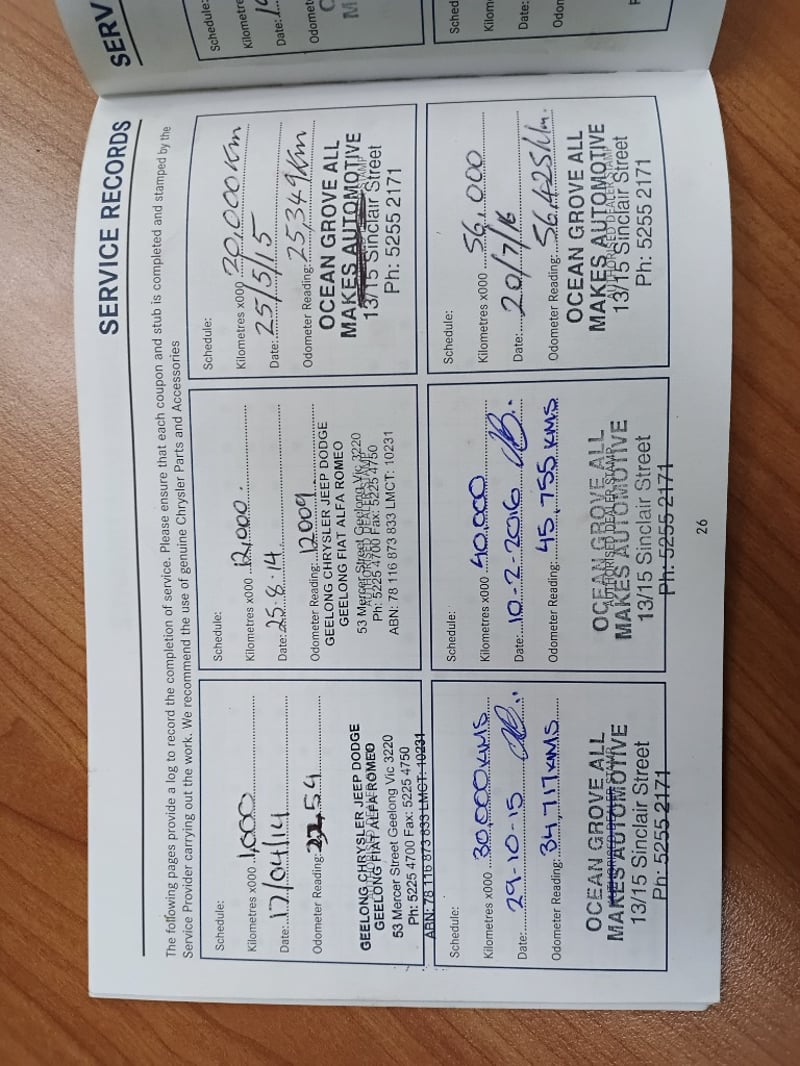 SERV
Schedule:
Kilometre
Date:
Odomet
Sched
Kilom
Date:
Odon
SERVICE RECORDS
The following pages provide a log to record the completion of service. Please ensure that each coupon and stub is completed and stamped by the
Service Provider carrying out the work. We recommend the use of genuine Chrysler Parts and Accessories
Schedule:
Kilometres x000 1,000
Date: 17/04/14
Odometer Reading:
GEELONG CHRYSLER JEEP DODGE
GEELONG FIAT ALFA ROMEO
53 Mercer Street Geelong Vic 3220
Ph: 5225 4700 Fax: 5225 4750
ABN: 78 116 873 833 LMCT: 10231
Schedule:
Kilometres x000 12,000.
Date: 25.8.14
Odometer Reading: 12009
GEELONG CHRYSLER JEEP DODGE
GEELONG FIAT ALFA ROMEO
53 Mercer Street Geelong Vic 3220
AUTHORISED DEALER STAMP
Ph: 5225 4700 Fax: 5225 4750
ABN: 78 116 873 833 LMCT: 10231
Schedule:
Kilometres x000 20,000Km
Date: 25/5/15
Odometer Reading: 25,349Km
OCEAN GROVE ALL
MAKES AUTOMOTIVE
13/15 Sinclair Street
Ph: 5255 2171
Schedule:
Kilometres x000 30,000KMS
Date: 29-10-15
Odometer Reading: 34,717KMS
OCEAN GROVE ALL
MAKES AUTOMOTIVE
AUTHORISED DEALER STAMP
13/15 Sinclair Street
Ph: 5255 2171
Schedule:
Kilometres x000 40,000
Date: 10-2-2016
Odometer Reading: 45,755KMS
OCEAN GROVE ALL
AUTHORISED DEALER STAMP
MAKES AUTOMOTIVE
13/15 Sinclair Street
Ph: 5255 2171
Schedule:
Kilometres x000 56,000
Date: 20/7/16
Odometer Reading: 56,425Km.
OCEAN GROVE ALL
MAKES AUTOMOTIVE
AUTHORISED DEALER STAMP
13/15 Sinclair Street
Ph: 5255 2171
26